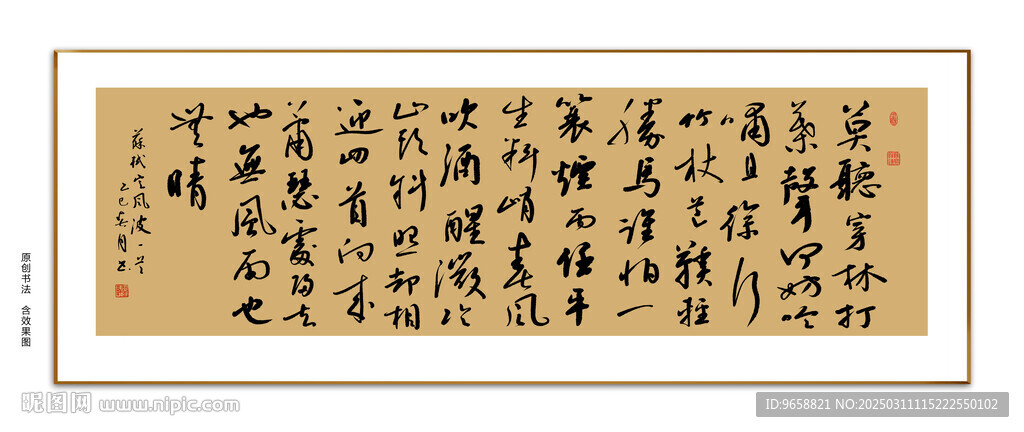 莫聽穿林打
葉聲何妨吟
嘯且徐行
竹杖芒鞋輕
勝馬誰怕一
蓑煙雨任平
生料峭春風
吹酒醒微冷
山頭斜照却相
迎回首向來
蕭瑟處歸去
也無風雨也
無晴
蘇軾定風波一首
乙巳春月書
原创书法 含效果图
昵图网 www.nipic.com
ID:9658821 NO:20250311115222550102